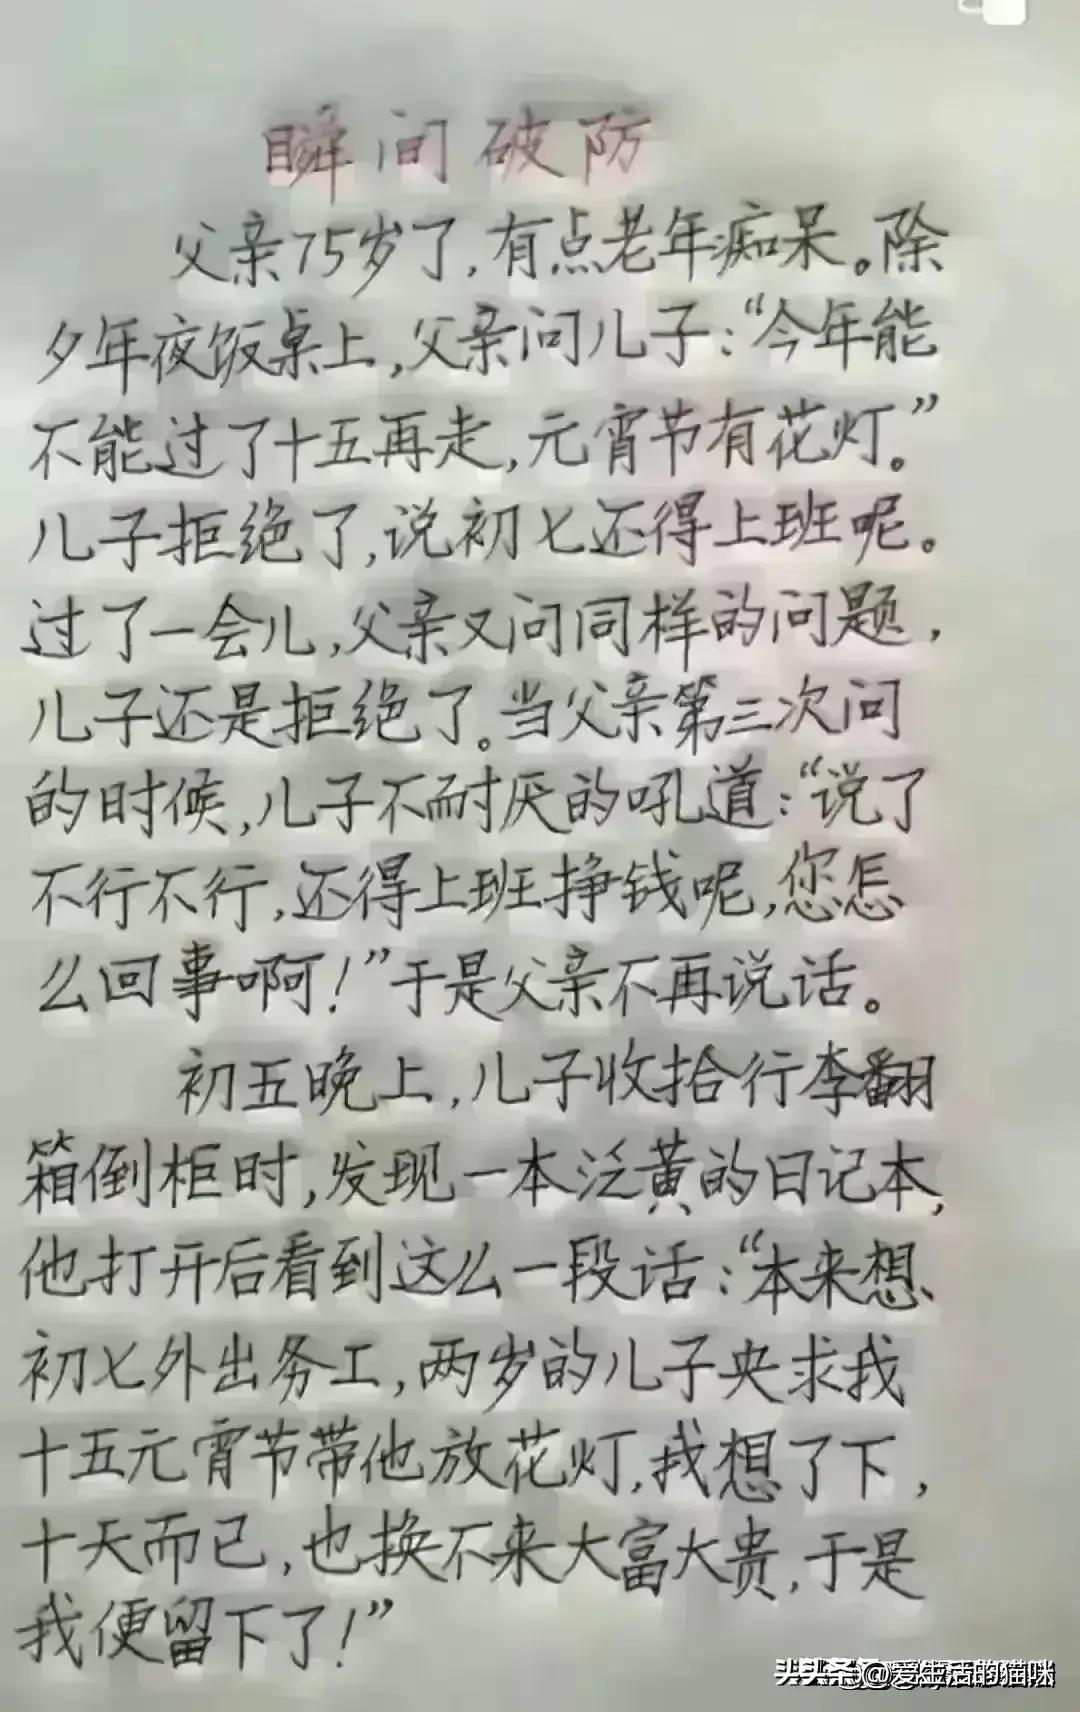 瞬间破防
父亲75岁了,有点老年痴呆。除
夕年夜饭桌上,父亲问儿子:“今年能
不能过了十五再走,元宵节有花灯。”
儿子拒绝了,说初七还得上班呢。
过了一会儿,父亲又问同样的问题,
儿子还是拒绝了。当父亲第三次问
的时候,儿子不耐厌的吼道:“说了
不行不行,还得上班挣钱呢,您怎
么回事啊!”于是父亲不再说话。
初五晚上,儿子收拾行李翻
箱倒柜时,发现一本泛黄的日记本,
他打开后看到这么一段话:“本来想
初七外出务工,两岁的儿子央求我
十五元宵节带他放花灯,我想了下,
十天而已,也换不来大富大贵,于是
我便留下了!”
头条@爱生活的猫咪